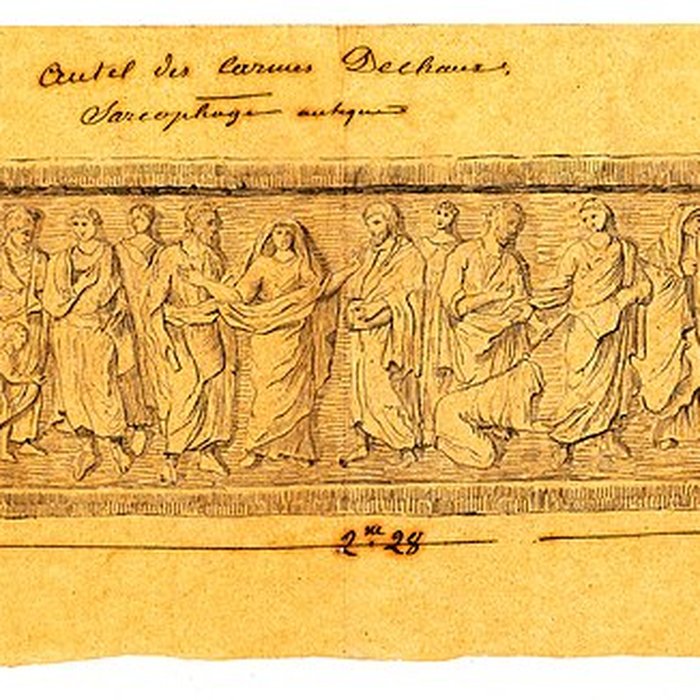 Autel des Carmes Dechaux.
Sarcophage antique
2 m 28